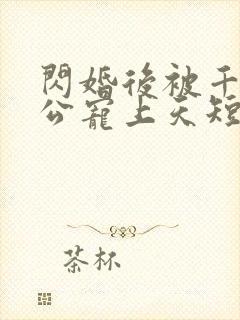 閃婚後被千
公寵上天短
茶杯